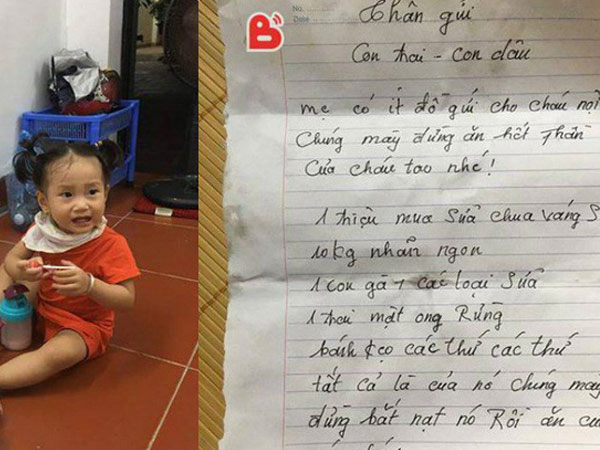 No.
Date
B
Thân gửi
Con trai - con dâu
mẹ có ít đồ gửi cho cháu nội
Chúng mày đừng ăn hết Phần
Của cháu tao nhé!
1 triệu mua sửa chua váng s
10kg nhản ngon
1 con gà + các loại sửa
1 chai mật ong Rừng
bánh kẹo các thứ các thứ
tất cả là của nó chúng may
đừng bắt nạt nó Rồi ăn cu